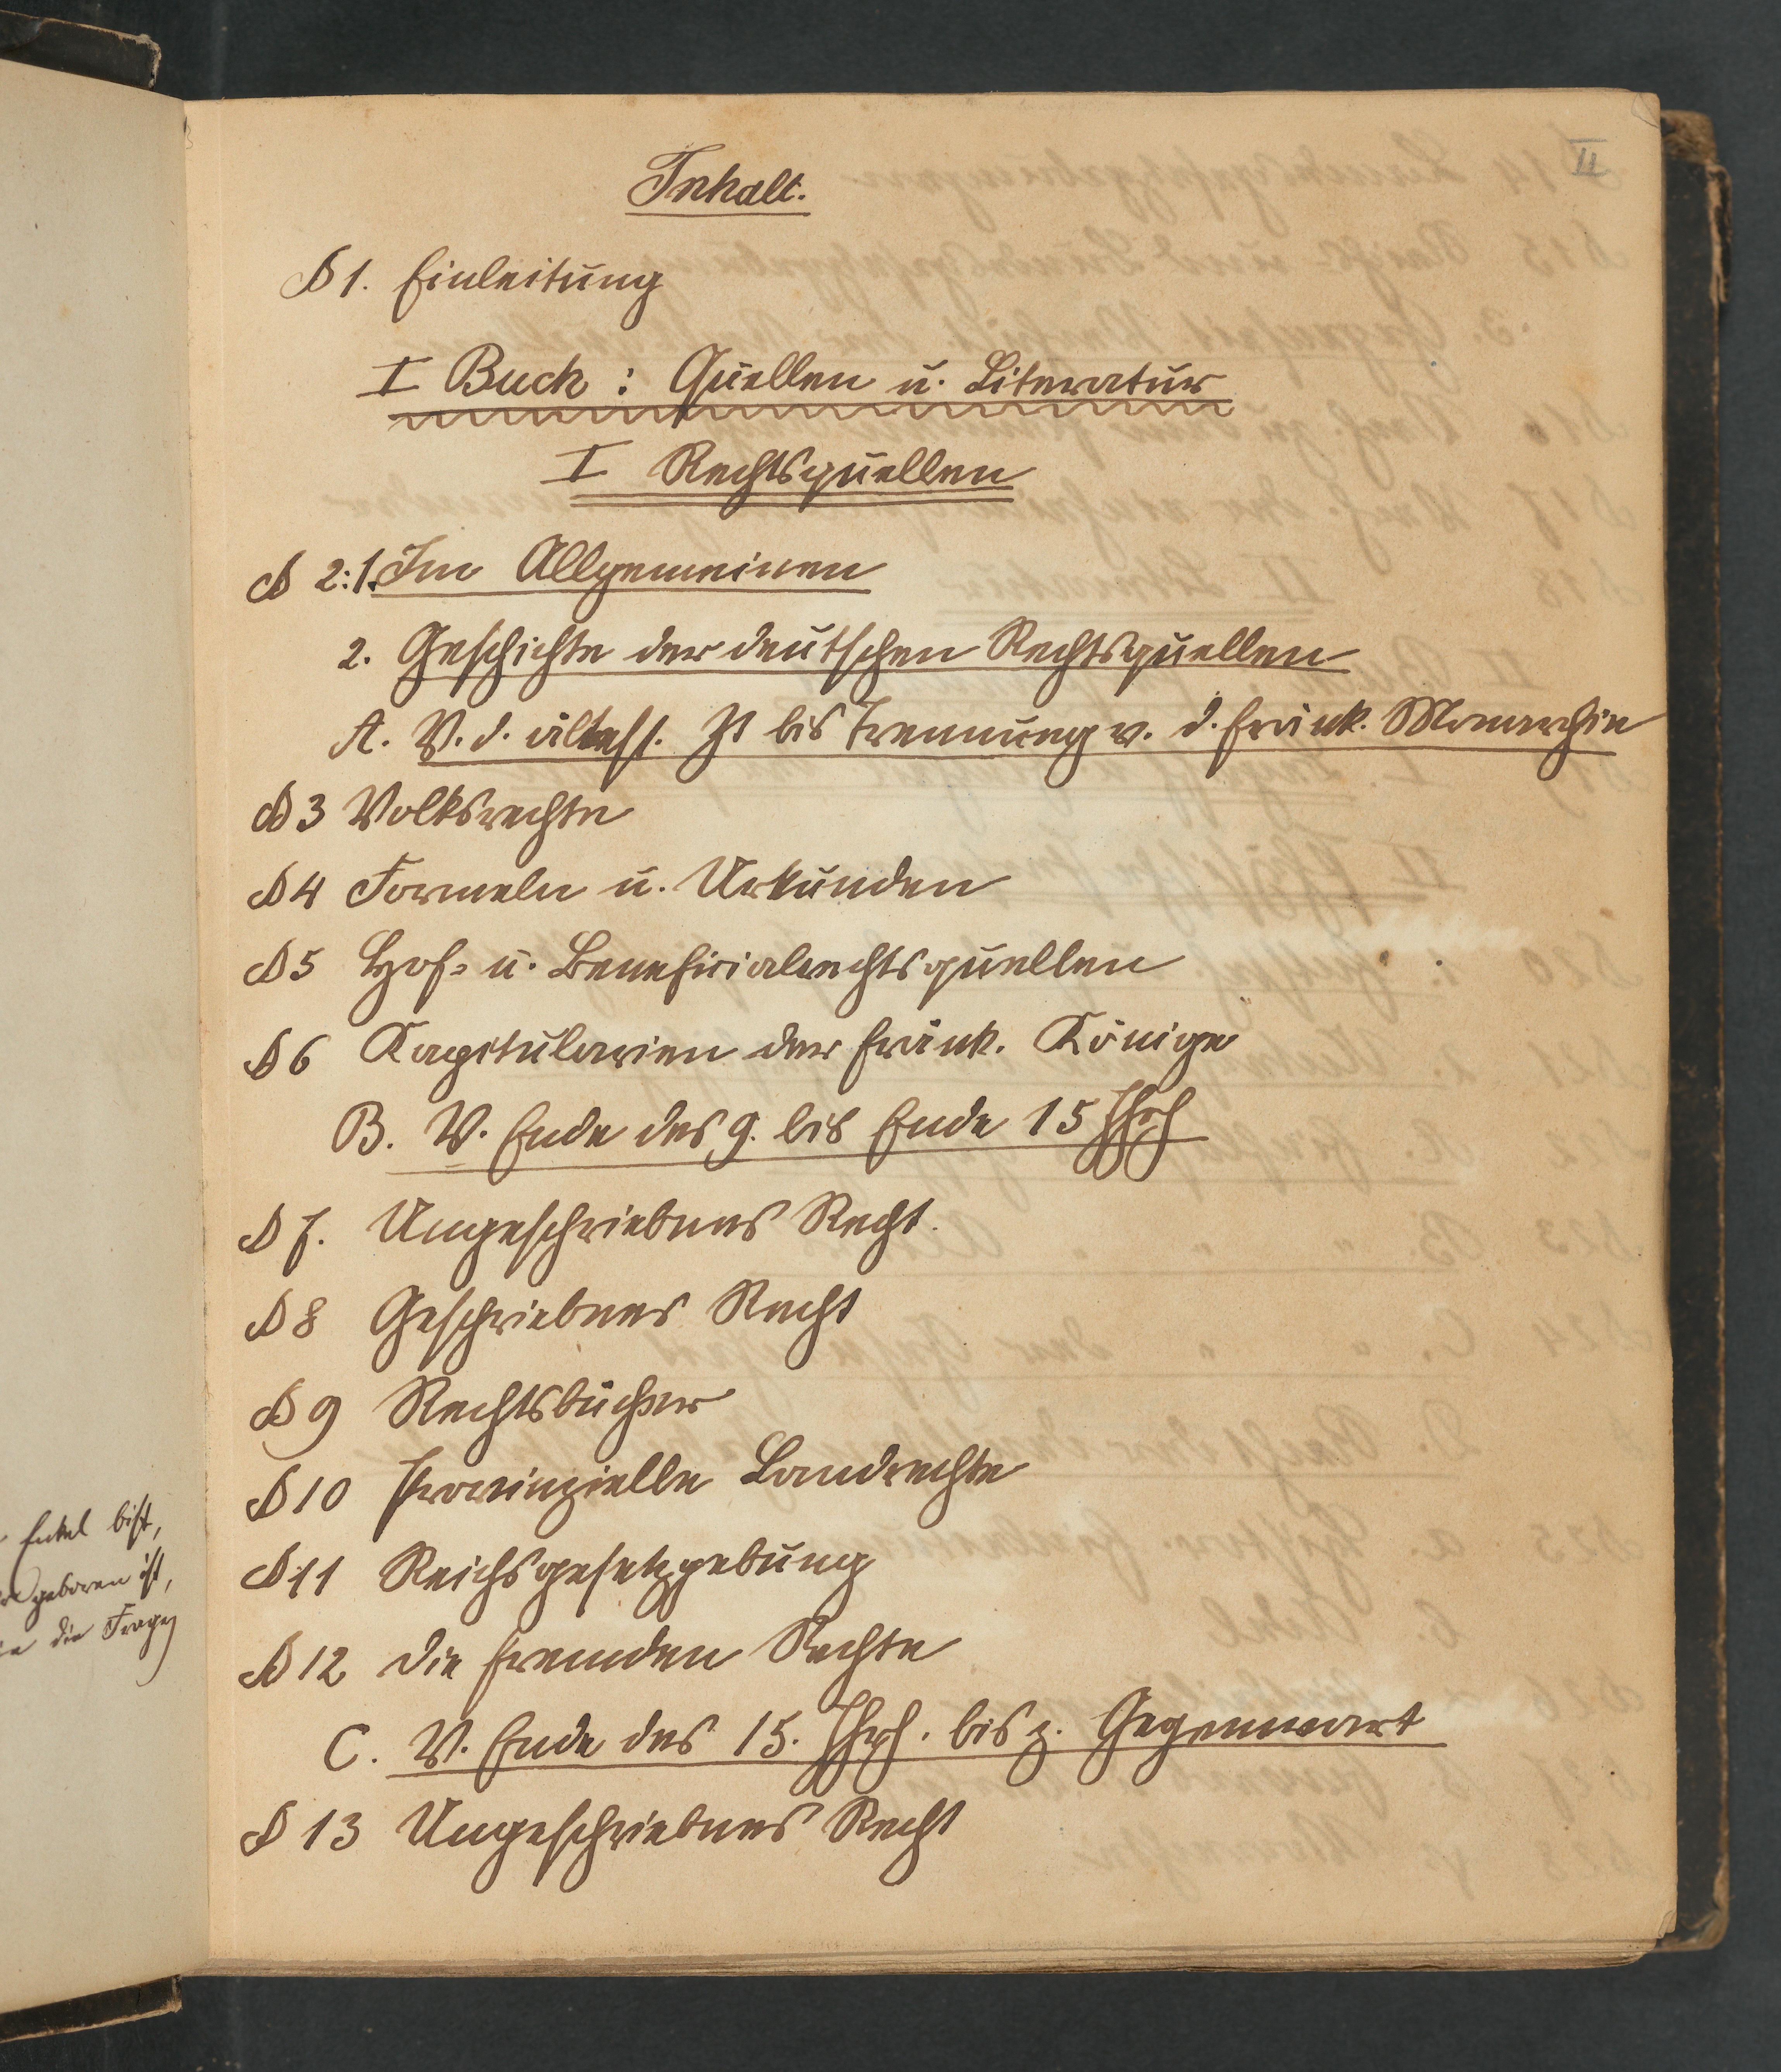 II
Inhalt.
§ 1. Einleitung
I Buch : Quellen u. Literatur
I Rechtsquellen
§ 2: 1. Im Allgemeinen
2. Geschichte der deutschen Rechtsquellen
A. V. d. ältest. Zt bis Trennung v. d. fränk. Monarchie
§ 3 Volksrechte
§ 4 Formeln u. Urkunden
§ 5 Hof- u. Beneficialrechtsquellen
§ 6 Kapitularien der fränk. Könige
B. V. Ende des 9. bis Ende 15 Jhrh
§ 7. Ungeschriebnes Recht.
§ 8 Geschriebnes Recht
§ 9 Rechtsbücher
§ 10 Provinzielle Landrechte
§ 11 Reichsgesetzgebung
§ 12 Die fremden Rechte
C. V. Ende des 15. Jhrh. bis z. Gegenwart
§ 13 Ungeschriebnes Recht
Enkel bist,
geboren ist,
die Frage